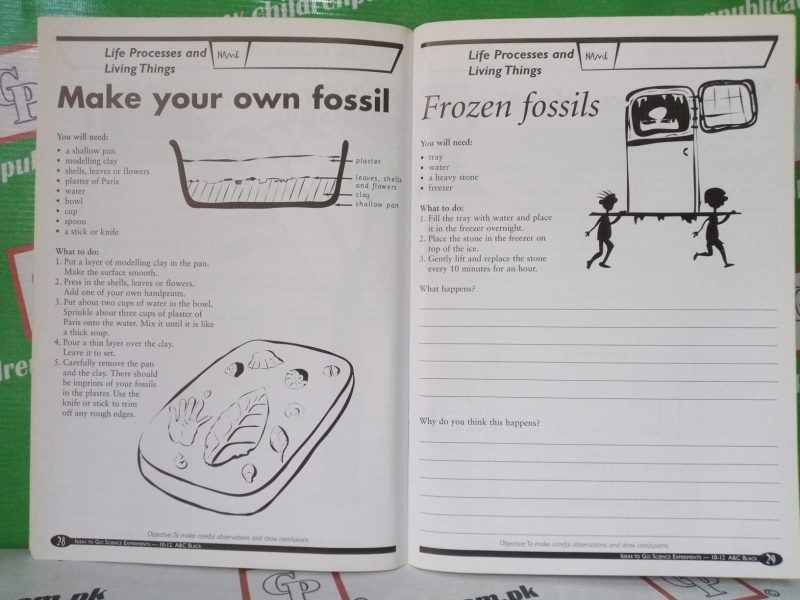 Life Processes and
Living Things
NAME
Make your own fossil
You will need:
• a shallow pan
• modelling clay
• shells, leaves or flowers
• plaster of Paris
• water
• bowl
• cup
• spoon
• a stick or knife
plaster
leaves, shells
and flowers
clay
shallow pan
What to do:
1. Put a layer of modelling clay in the pan.
Make the surface smooth.
2. Press in the shells, leaves or flowers.
Add one of your own handprints.
3. Put about two cups of water in the bowl.
Sprinkle about three cups of plaster of
Paris onto the water. Mix it until it is like
a thick soup.
4. Pour a thin layer over the clay.
Leave it to set.
5. Carefully remove the pan
and the clay. There should
be imprints of your fossils
in the plaster. Use the
knife or stick to trim
off any rough edges.
Objective: To make careful observations and draw conclusions
28 IDEAS TO GO: SCIENCE EXPERIMENTS — 10-12 A&C BLACK
Life Processes and
Living Things
NAME
Frozen fossils
You will need:
• tray
• water
• a heavy stone
• freezer
What to do:
1. Fill the tray with water and place
it in the freezer overnight.
2. Place the stone in the freezer on
top of the ice.
3. Gently lift and replace the stone
every 10 minutes for an hour.
What happens?
Why do you think this happens?
Objective: To make careful observations and draw conclusions
IDEAS TO GO: SCIENCE EXPERIMENTS — 10-12 A&C BLACK 29
GP
GP